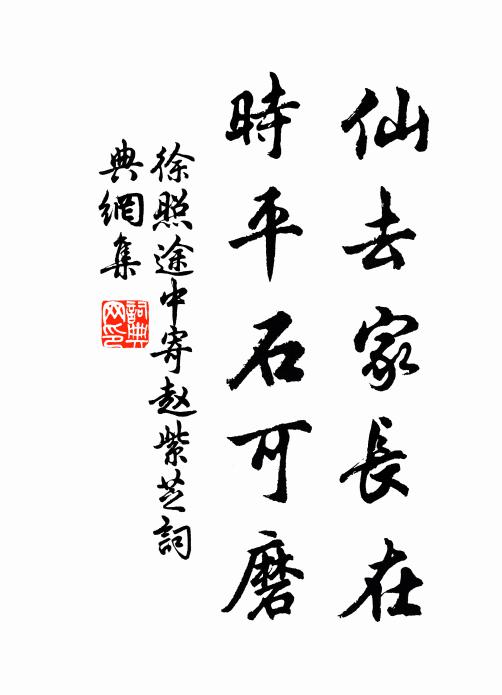 仙去家長在
時平石可磨
徐照途中寄赵紫芝詞
典網集
詞典
网印